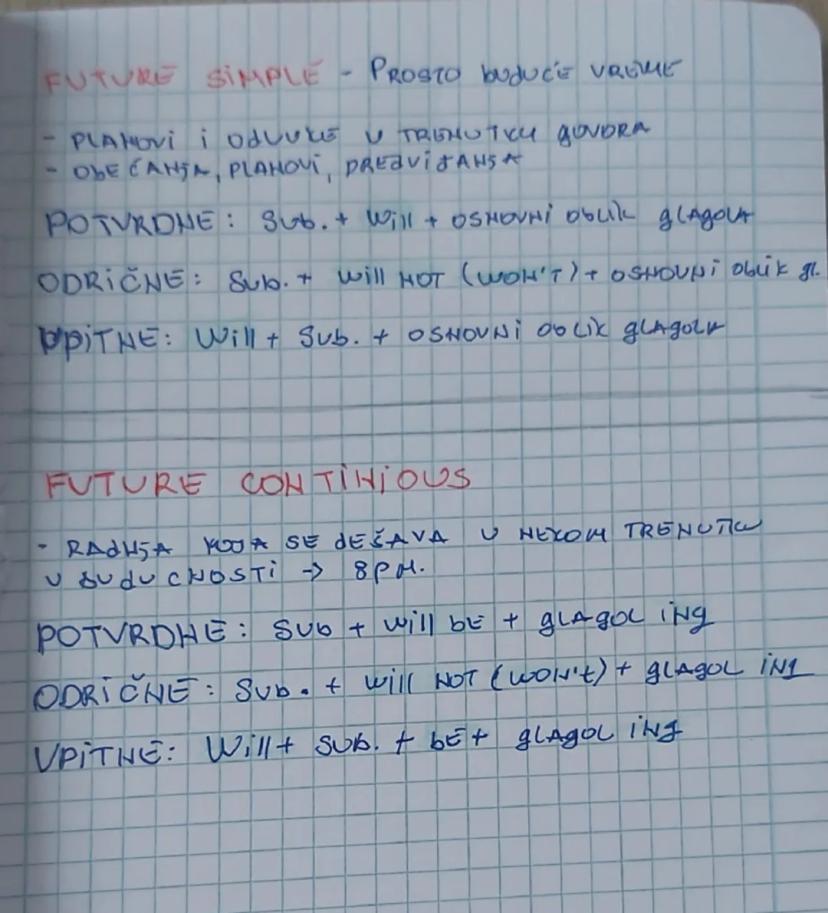 FUTURE SIMPLE - PROSTO BUDUĆE VREME
- PLANOVI I ODLUKE U TRENUTKU GOVORA
- OBEĆANJA, PLANOVI, PREDVIĐANJA
POTVRDNE: Sub. + Will + OSNOVNI OBLIK GLAGOLA
ODRIČNE: Sub. + Will NOT (WON'T) + OSNOVNI OBLIK gl.
UPITNE: Will + Sub. + OSNOVNI OBLIK GLAGOLA
FUTURE CONTINIOUS
- RADNJA KOJA SE DEŠAVA U NEKOM TRENUTKU
U BUDUĆNOSTI → 8PM.
POTVRDNE: SUB + Will BE + GLAGOL ING
ODRIČNE: SUB. + Will NOT (WON'T) + GLAGOL ING
UPITNE: Will + SUB. + BE + GLAGOL ING